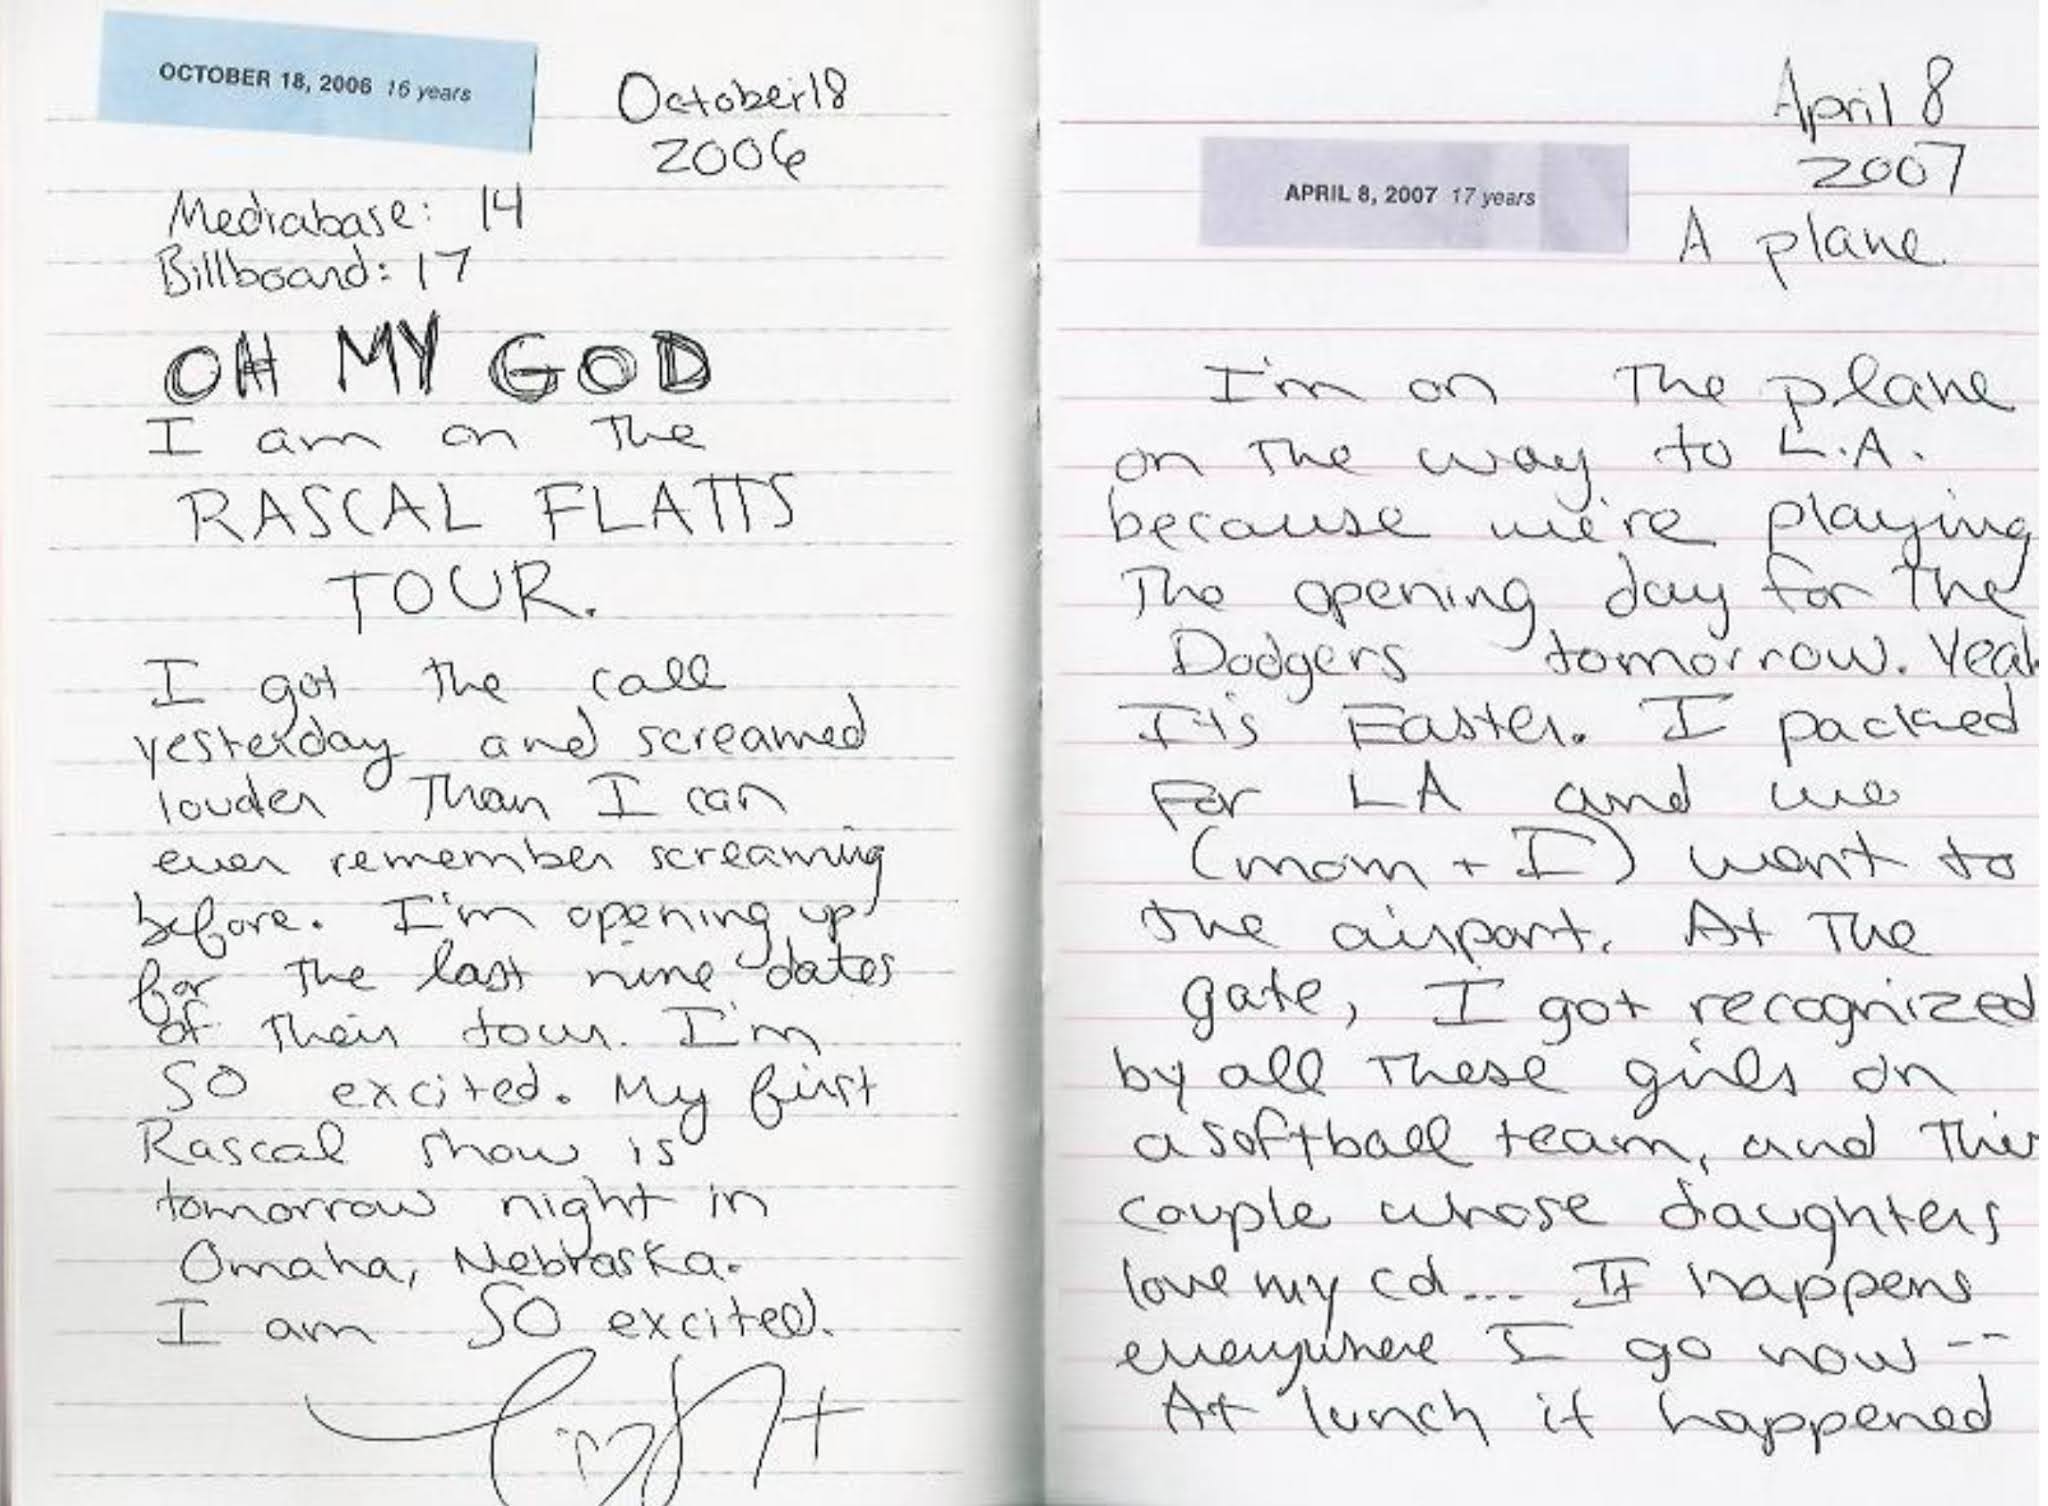 OCTOBER 18, 2006 16 years
October 18
2006
Mediabase: 14
Billboard: 17
OH MY GOD
I am on the
RASCAL FLATTS
TOUR.
I got the call
yesterday and screamed
louder than I can
ever remember screaming
before. I'm opening up
for the last nine dates
of their tour. I'm
SO excited. My first
Rascal show is
tomorrow night in
Omaha, Nebraska.
I am SO excited.
April 8
2007
APRIL 8, 2007 17 years
A plane.
I'm on the plane
on the way to L.A.
because we're playing
the opening day for the
Dodgers tomorrow. Yeah
It's Easter. I packed
for LA and we
(mom + I) went to
the airport. At the
gate, I got recognized
by all these girls on
a softball team, and this
couple whose daughters
love my cd... It happens
everywhere I go now --
At lunch it happened